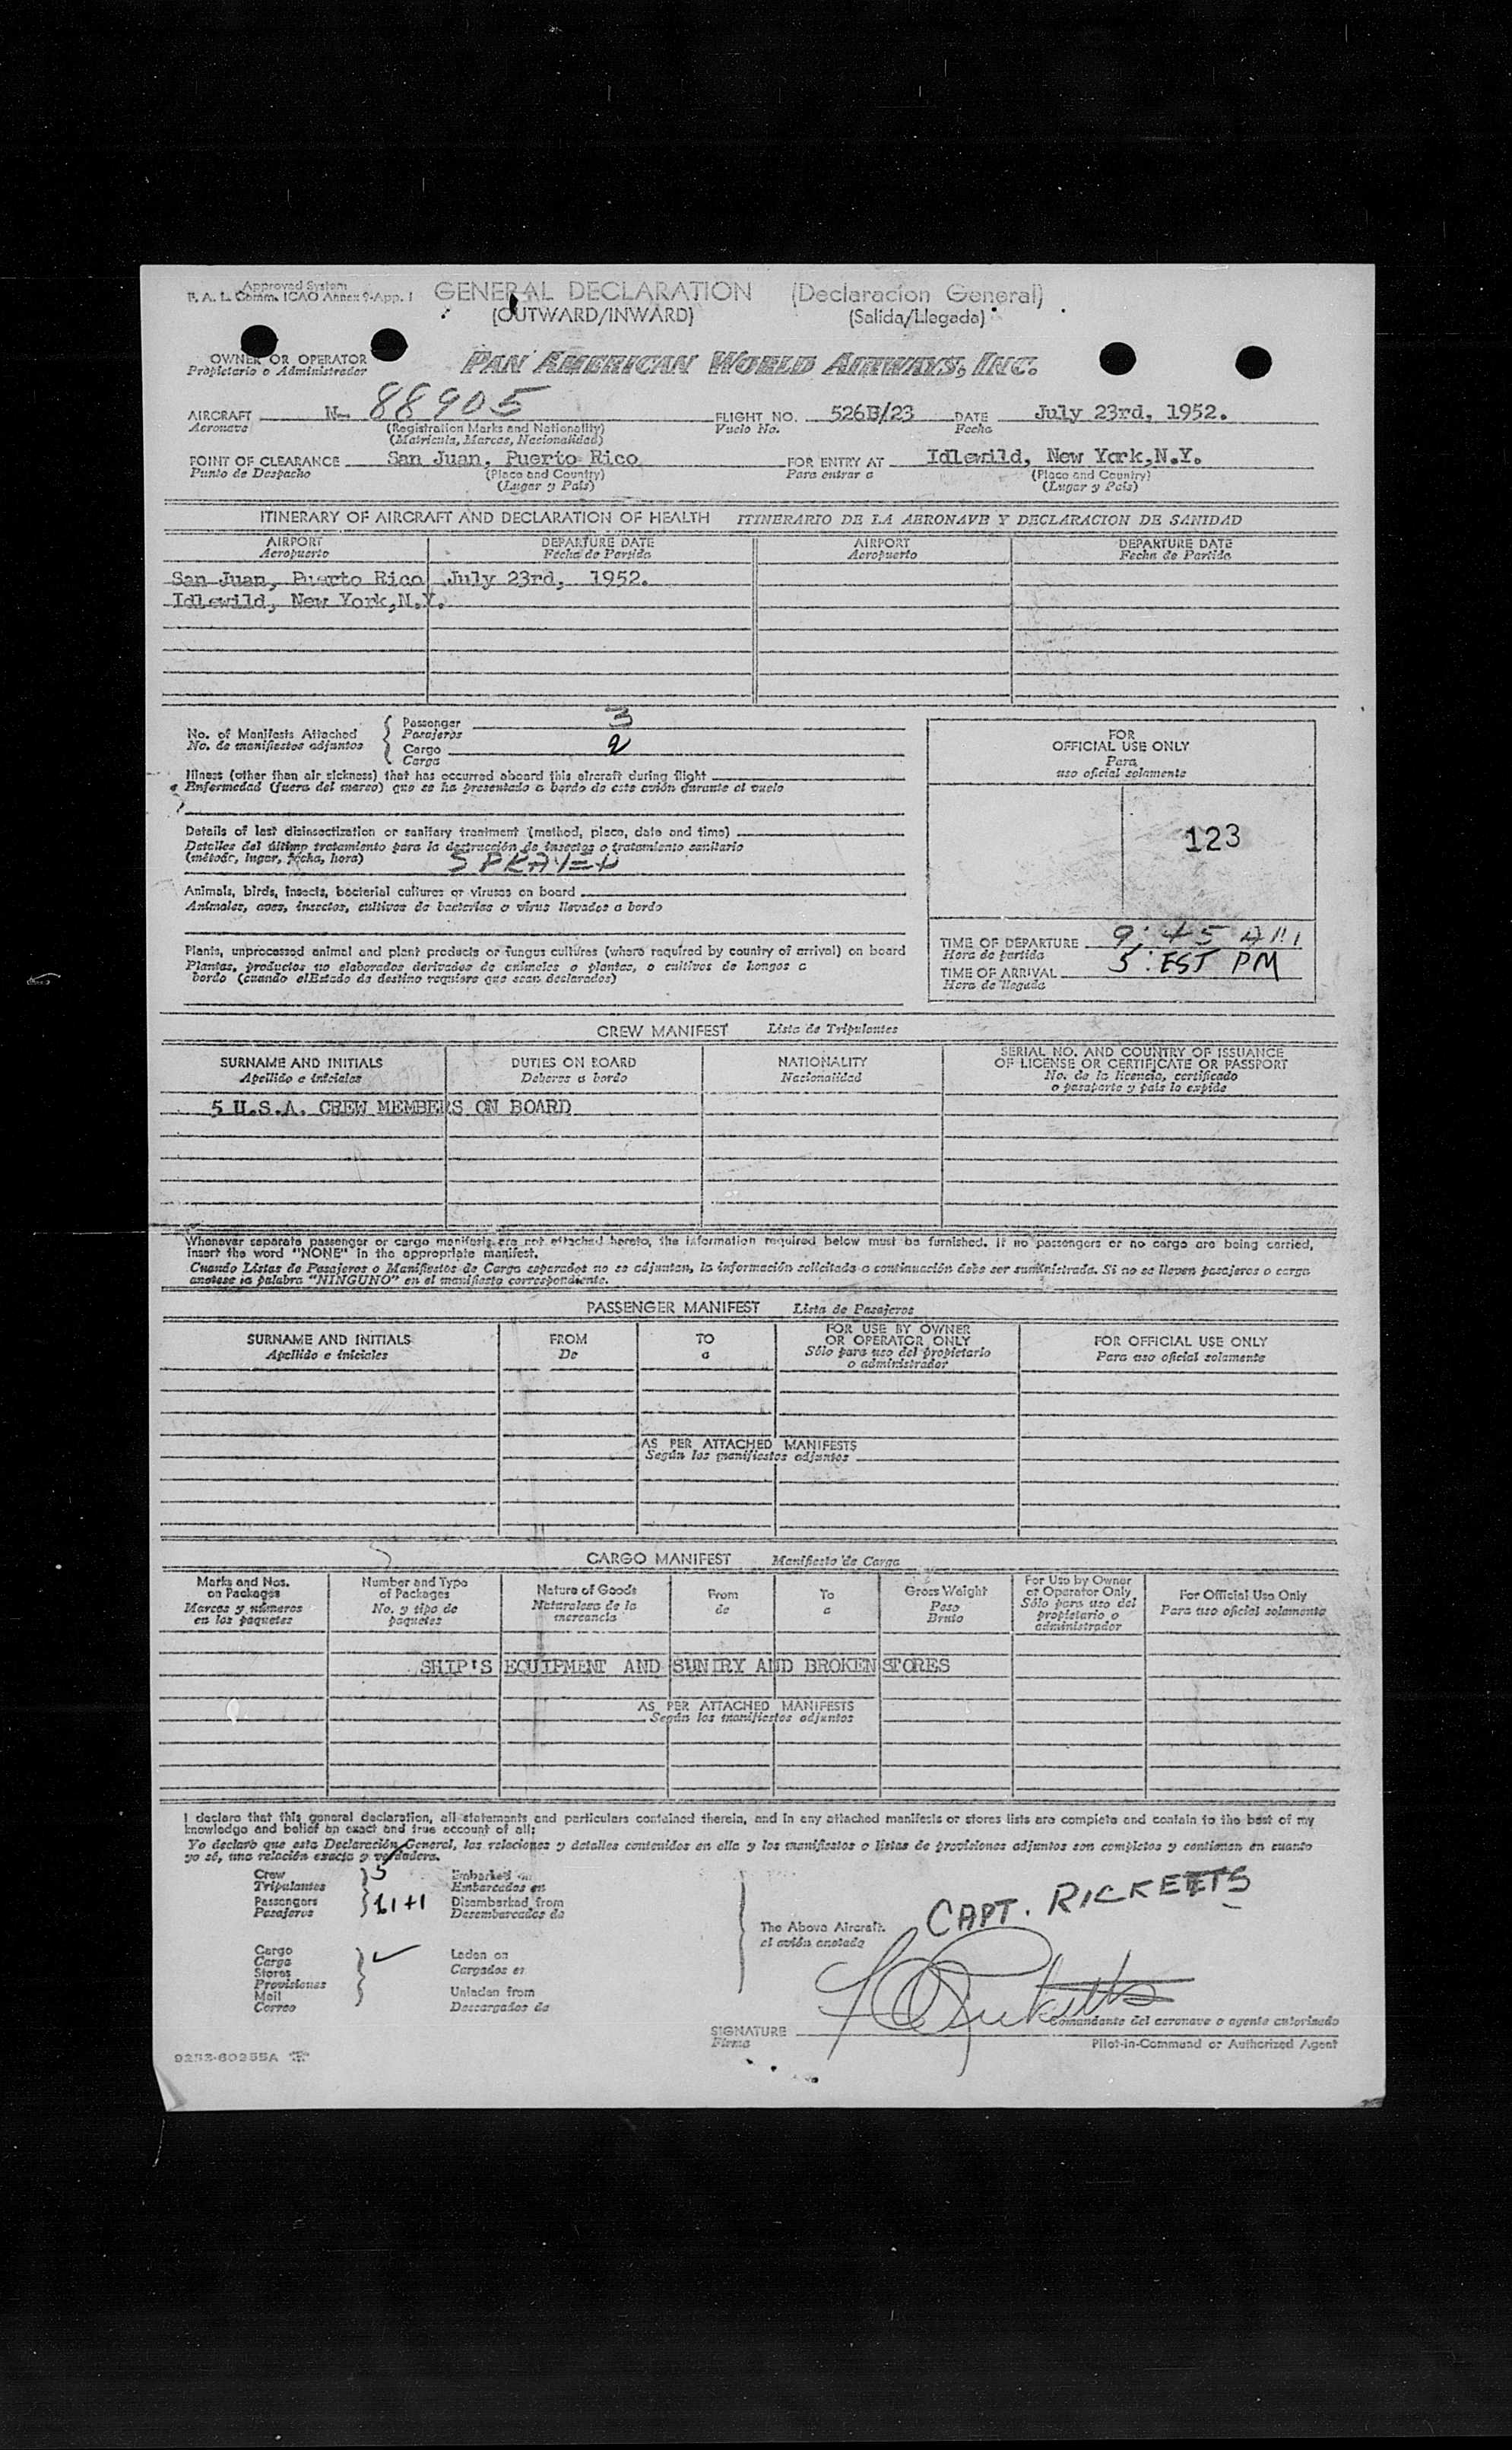 Approved System
F. A. L. Comm. ICAO Annex 9-App. I
GENERAL DECLARATION (Declaracion General)
(OUTWARD/INWARD) (Salida/Llegada)
OWNER OR OPERATOR
Propietario o Administrador
PAN AMERICAN WORLD AIRWAYS, INC.
AIRCRAFT N- 88905 FLIGHT NO. 526B/23 DATE July 23rd, 1952.
Aeronave (Registration Marks and Nationality) Vuelo No. Fecha
(Matricula, Marcas, Nacionalidad)
POINT OF CLEARANCE San Juan, Puerto Rico FOR ENTRY AT Idlewild, New York,N.Y.
Punto de Despacho (Place and Country) Para entrar a (Place and Country)
(Lugar y Pais) (Lugar y Pais)
ITINERARY OF AIRCRAFT AND DECLARATION OF HEALTH ITINERARIO DE LA AERONAVE Y DECLARACION DE SANIDAD
AIRPORT DEPARTURE DATE AIRPORT DEPARTURE DATE
Aeropuerto Fecha de Partida Aeropuerto Fecha de Partida
San Juan, Puerto Rico July 23rd, 1952.
Idlewild, New York,N.Y.
No. of Manifests Attached
No. de manifiestos adjuntos
Passenger 3
Pasajeros
Cargo 2
Carga
Illness (other than air sickness) that has occurred aboard this aircraft during flight
Enfermedad (fuera del mareo) que se ha presentado a bordo de este avión durante el vuelo
Details of last disinsectization or sanitary treatment (method, place, date and time)
Detalles del último tratamiento para la destrucción de insectos o tratamiento sanitario
(método, lugar, fecha, hora) SPRAYED
Animals, birds, insects, bacterial cultures or viruses on board
Animales, aves, insectos, cultivos de bacterias o virus llevados a bordo
Plants, unprocessed animal and plant products or fungus cultures (where required by country of arrival) on board
Plantas, productos no elaborados derivados de animales o plantas, o cultivos de hongos a
bordo (cuando elEstado de destino requiere que sean declarados)
FOR
OFFICIAL USE ONLY
Para
uso oficial solamente
123
TIME OF DEPARTURE 9:45 AM
Hora de partida
TIME OF ARRIVAL 5: EST PM
Hora de llegada
CREW MANIFEST Lista de Tripulantes
SURNAME AND INITIALS DUTIES ON BOARD NATIONALITY SERIAL NO. AND COUNTRY OF ISSUANCE
OF LICENSE OR CERTIFICATE OR PASSPORT
Apellido e iniciales Deberes a bordo Nacionalidad No. de la licencia, certificado
o pasaporte y pais lo expide
5 U.S.A. CREW MEMBERS ON BOARD
Whenever separate passenger or cargo manifests are not attached hereto, the information required below must be furnished. If no passengers or no cargo are being carried,
insert the word "NONE" in the appropriate manifest.
Cuando Listas de Pasajeros o Manifiestos de Carga separados no se adjuntan, la información solicitada a continuación debe ser suministrada. Si no se lleven pasajeros o carga
anotese la palabra "NINGUNO" en el manifiesto correspondiente.
PASSENGER MANIFEST Lista de Pasajeros
SURNAME AND INITIALS FROM TO FOR USE BY OWNER
OR OPERATOR ONLY FOR OFFICIAL USE ONLY
Apellido e iniciales De a Sólo para uso del propietario
o administrador Para uso oficial solamente
AS PER ATTACHED MANIFESTS
Según los manifiestos adjuntos
CARGO MANIFEST Manifiesto de Carga
Marks and Nos.
on Packages
Marcas y números
en los paquetes
Number and Type
of Packages
No. y tipo de
paquetes
Nature of Goods
Naturaleza de la
mercancia
From
de
To
a
Gross Weight
Peso
Bruto
For Use by Owner
or Operator Only
Sólo para uso del
propietario o
administrador
For Official Use Only
Para uso oficial solamente
SHIP'S EQUIPMENT AND SUNDRY AND BROKEN STORES
AS PER ATTACHED MANIFESTS
Según los manifiestos adjuntos
I declare that this general declaration, all statements and particulars contained therein, and in any attached manifests or stores lists are complete and contain to the best of my
knowledge and belief an exact and true account of all:
Yo declaro que esta Declaración General, las relaciones y detalles contenidos en ella y los manifiestos o listas de provisiones adjuntos son completos y contienen en cuanto
yo sé, una relación exacta y verdadera.
Crew 5
Tripulantes
Passengers 11+1
Pasajeros
Embarked on
Embarcados en
Disembarked from
Desembarcados de
Cargo
Carga
Stores
Provisiones
Mail
Correo
Laden on
Cargados en
Unladen from
Descargados de
The Above Aircraft.
el avión anotado
CAPT. RICKETTS
Ricketts
Comandante del aeronave o agente autorizado
SIGNATURE
Firma
Pilot-in-Command or Authorized Agent